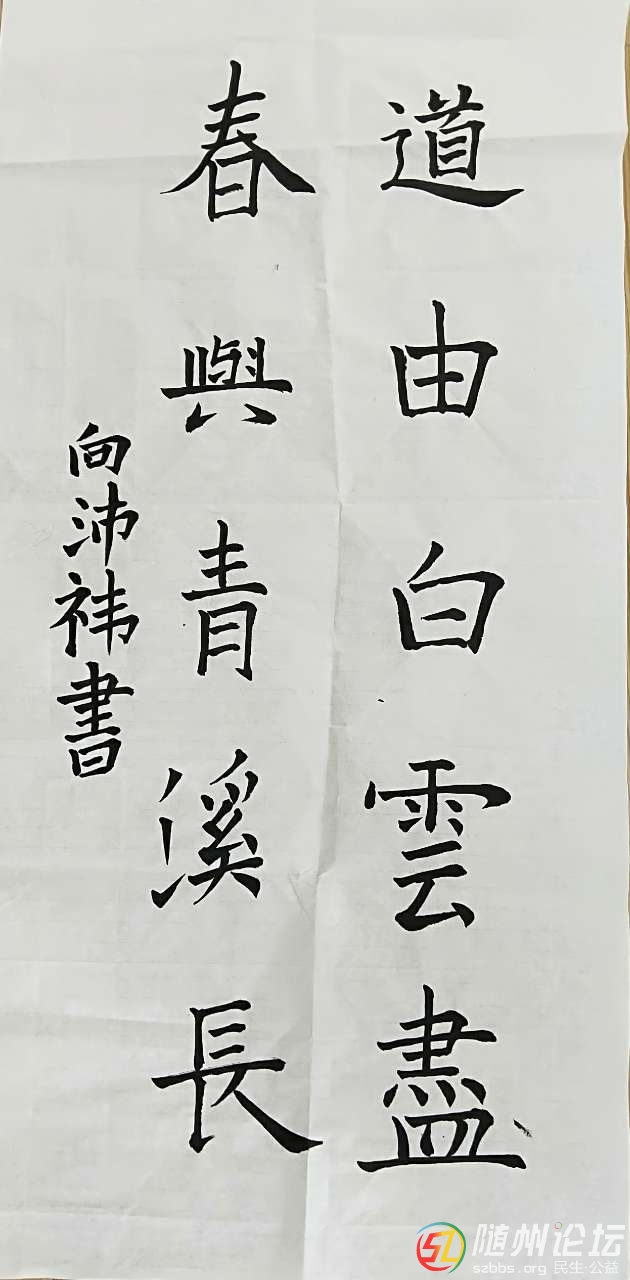 道由白雲盡
春與青溪長
向沛祎書
随州论坛
szbbs.org 民生·公益